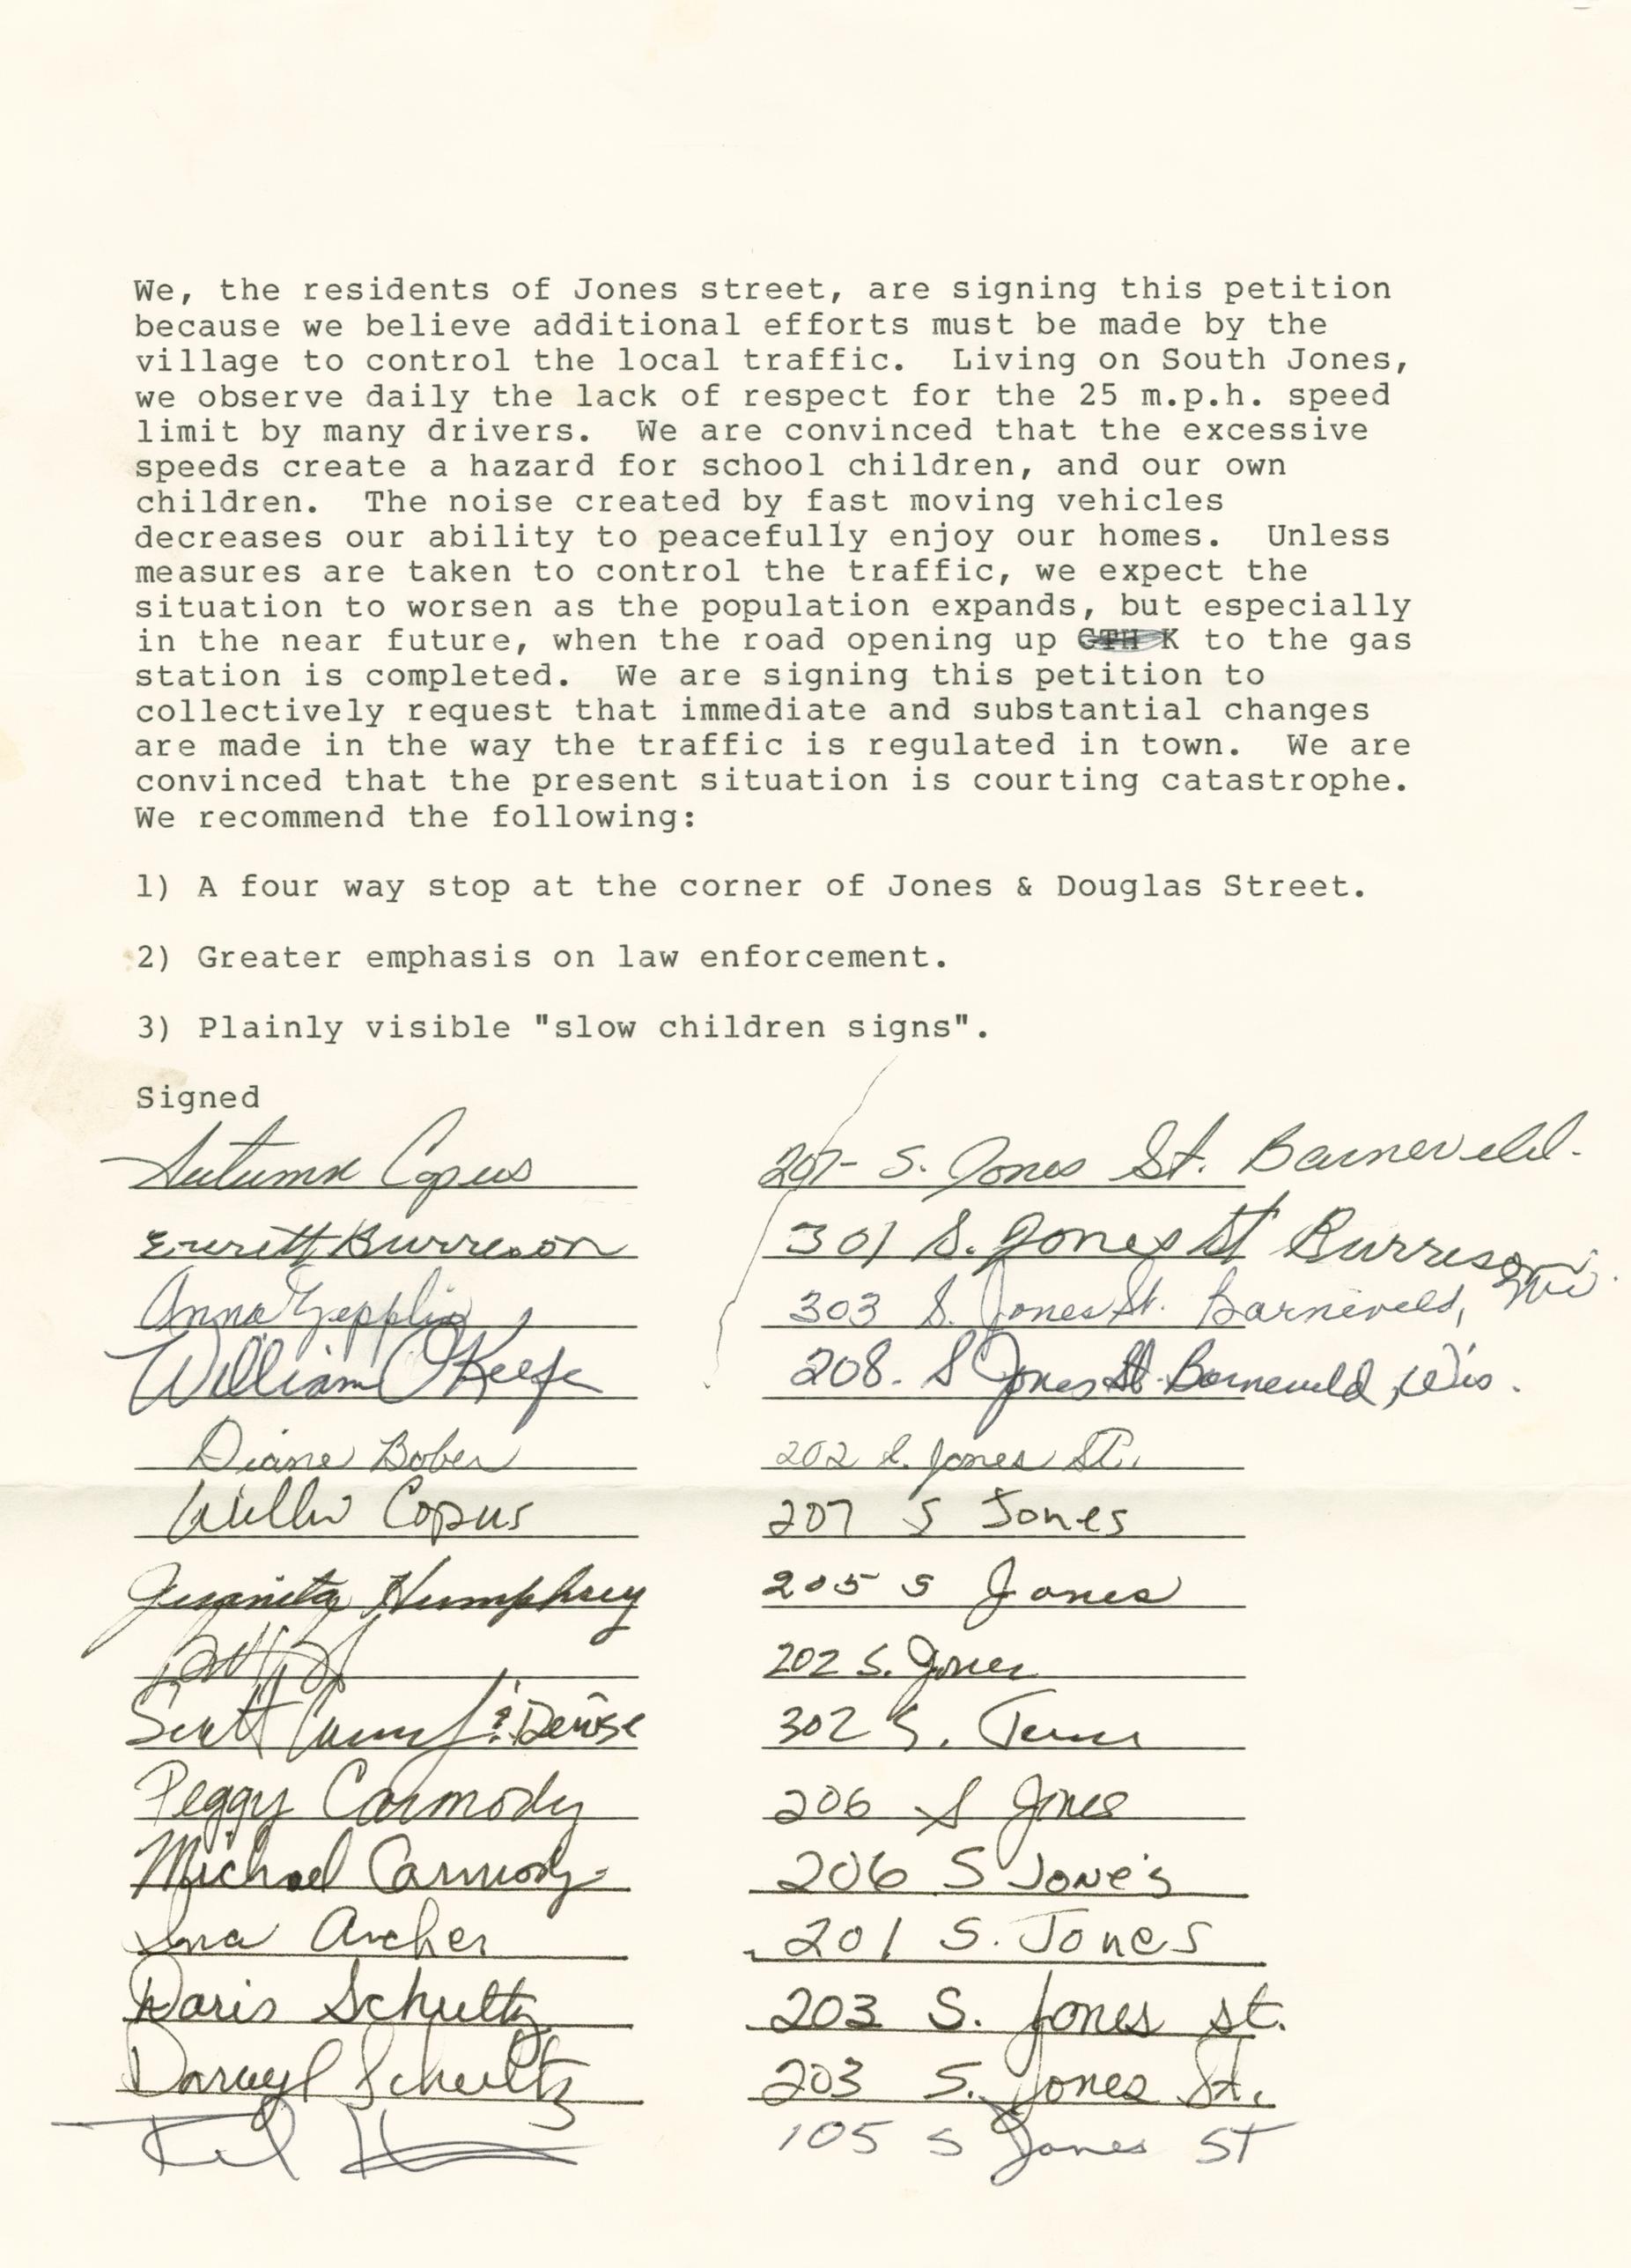 We, the residents of Jones street, are signing this petition
because we believe additional efforts must be made by the
village to control the local traffic.  Living on South Jones,
we observe daily the lack of respect for the 25 m.p.h. speed
limit by many drivers.  We are convinced that the excessive
speeds create a hazard for school children, and our own
children.  The noise created by fast moving vehicles
decreases our ability to peacefully enjoy our homes.  Unless
measures are taken to control the traffic, we expect the
situation to worsen as the population expands, but especially
in the near future, when the road opening up CTH K to the gas
station is completed.  We are signing this petition to
collectively request that immediate and substantial changes
are made in the way the traffic is regulated in town.  We are
convinced that the present situation is courting catastrophe.
We recommend the following:
1) A four way stop at the corner of Jones & Douglas Street.
2) Greater emphasis on law enforcement.
3) Plainly visible "slow children signs".
Signed
Autumn Copus 207- S. Jones St. Barneveld.
Everett Burreson 301 S. Jones St Burreson
Anna Zepplin 303 S. Jones St. Barneveld, Wi.
William O'Keefe 208. S Jones St. Barneveld, Wis.
Diane Bober 202 S. Jones St.
Copus 207 S Jones
Juanita Humphrey 205 S Jones
202 S. Jones
Scott & Denise 302 S. Jones
Peggy Carmody 206 S Jones
Michael Carmody 206 S Jones
Ina Archer 201 S. Jones
Doris Schultz 203 S. Jones st.
Darryl Schultz 203 S. Jones St.
105 S Jones ST